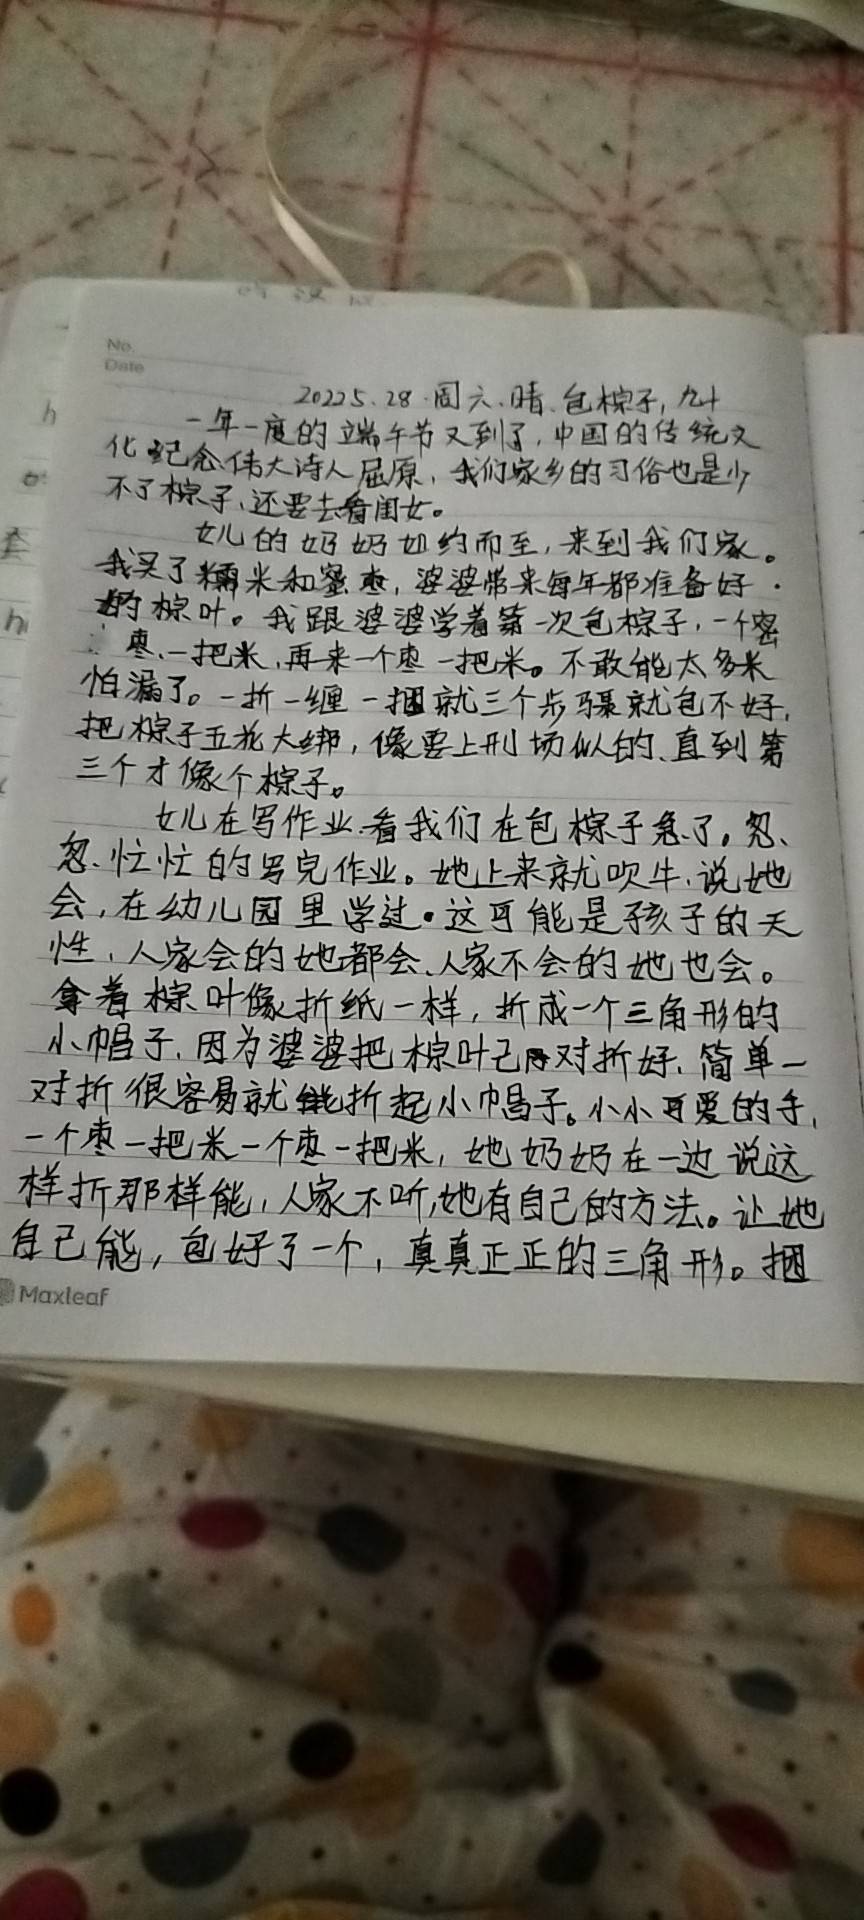 No.
Date
2022 5.28.周六.晴.包棕子,九十
一年一度的端午节又到了,中国的传统文
化纪念伟大诗人屈原,我们家乡的习俗也是少
不了棕子,还要去看闺女。
女儿的奶奶如约而至,来到我们家。
我买了糯米和蜜枣,婆婆带来每年都准备好
的棕叶。我跟婆婆学着第一次包棕子,一个密
枣、一把米,再来一个枣一把米。不敢能太多米
怕漏了。一折一缠一捆就三个步骤就包不好,
把棕子五花大绑,像要上刑场似的、直到第
三个才像个棕子。
女儿在写作业.看我们在包棕子急了。忽、
忽、忙忙的写完作业。她上来就吹牛,说她
会,在幼儿园里学过.这可能是孩子的天
性,人家会的她都会、人家不会的她也会。
拿着棕叶像折纸一样,折成一个三角形的
小帽子,因为婆婆把棕叶己对折好,简单一
对折很容易就能折起小帽子。小小可爱的手,
一个枣一把米一个枣一把米,她奶奶在一边说这
样折那样能,人家不听,她有自己的方法。让她
自己能,包好了一个,真真正正的三角形。捆
Maxleaf